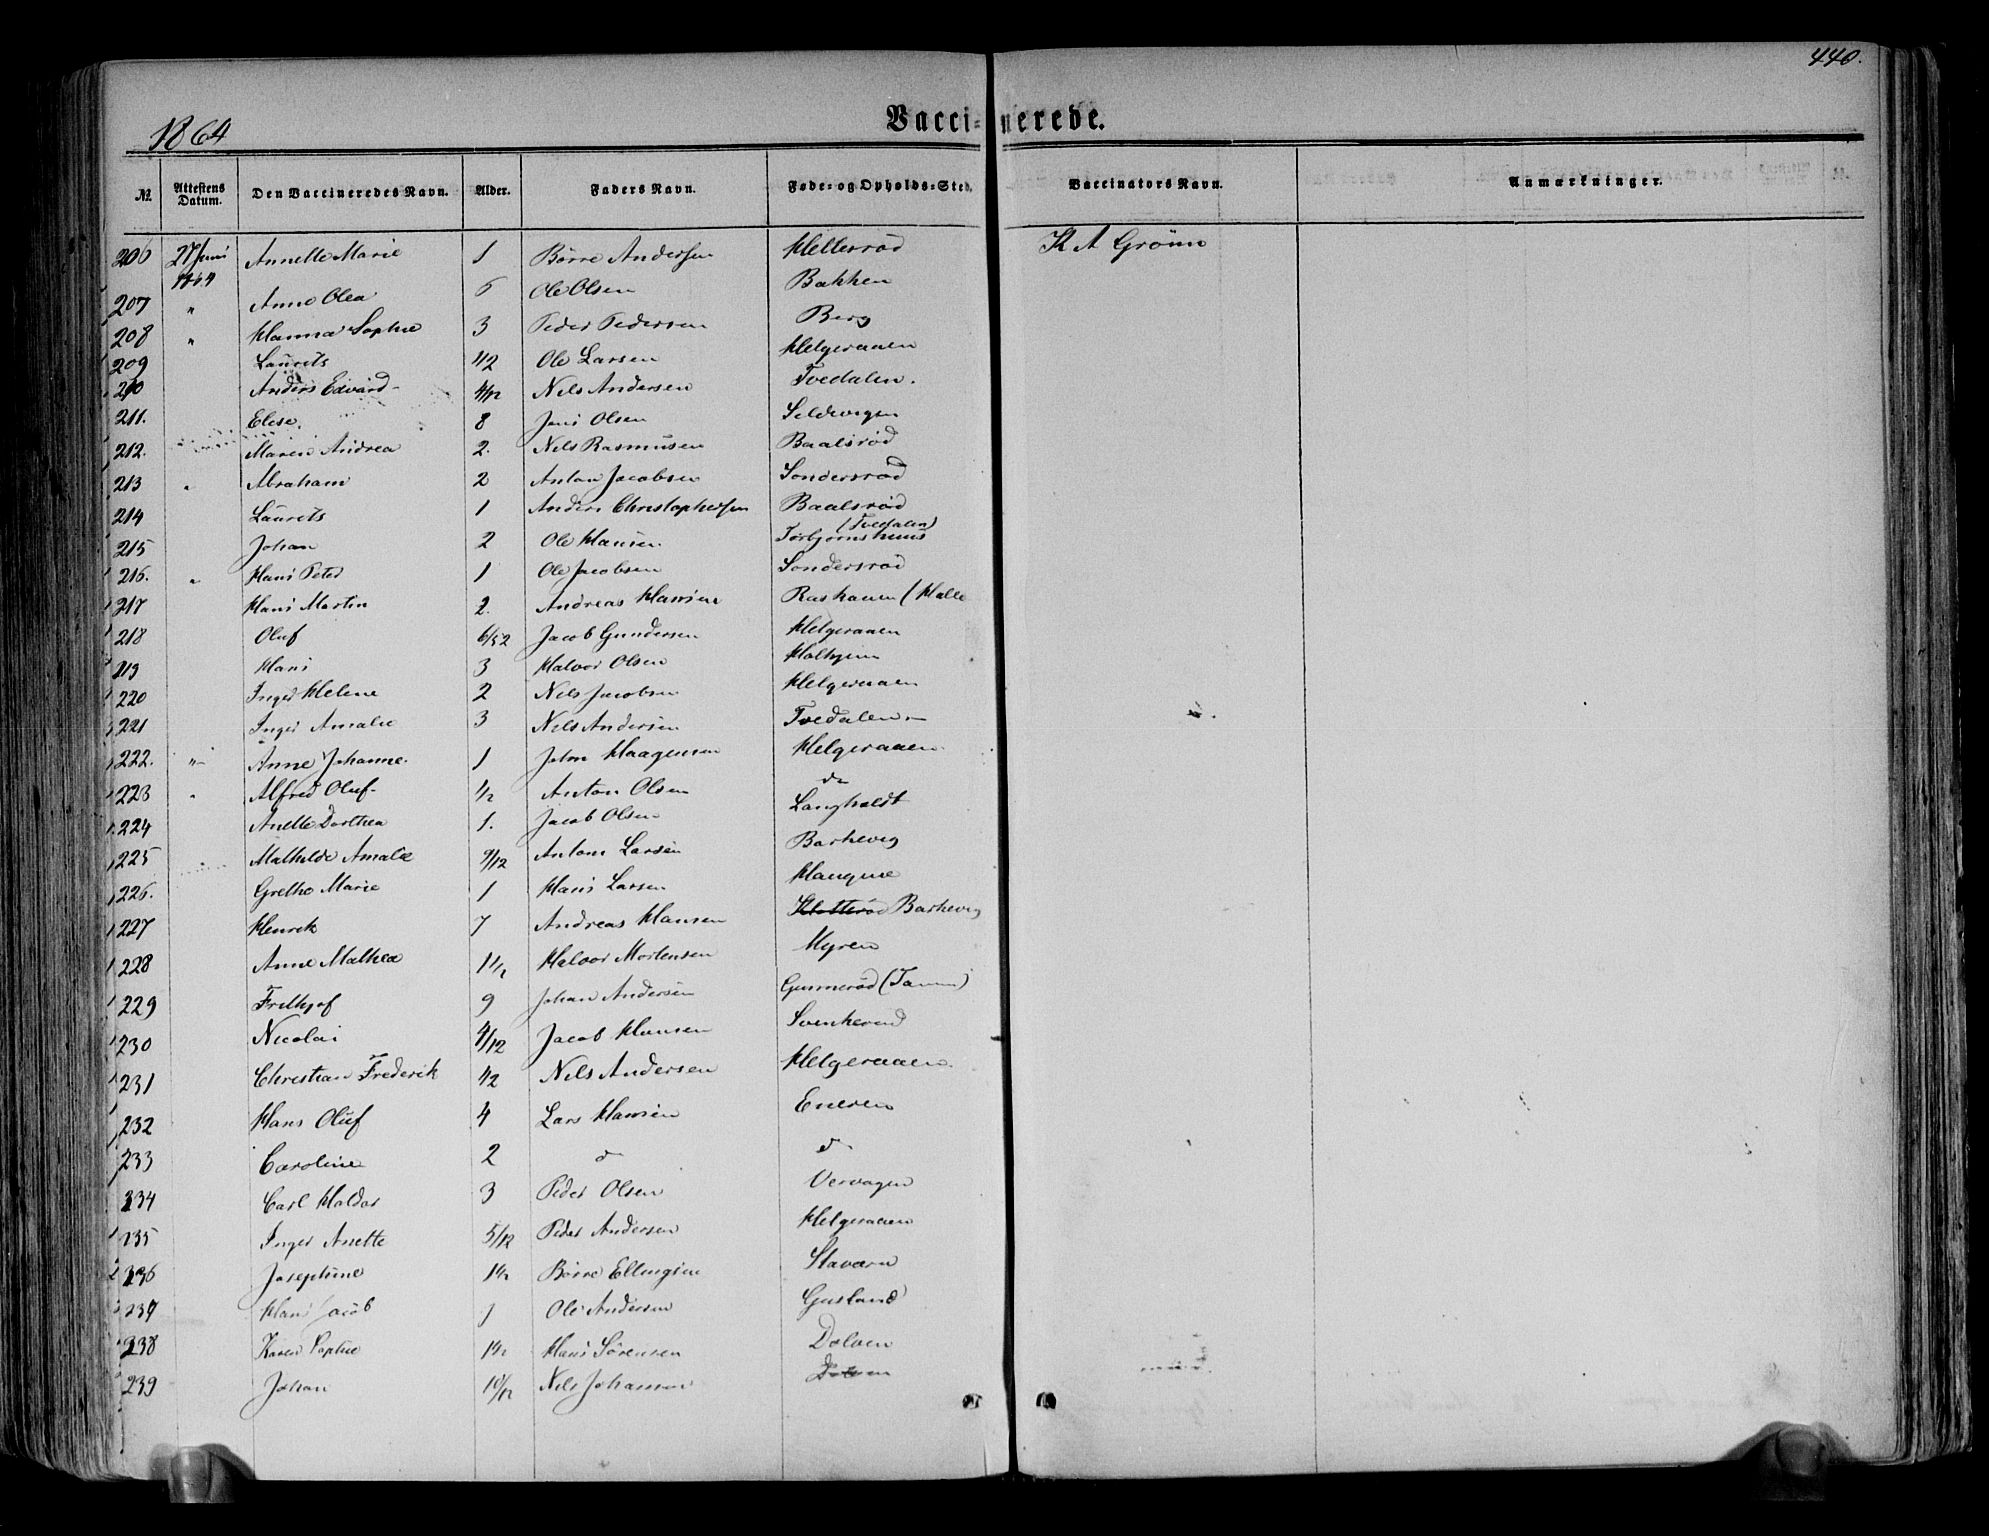 440.
1864
Vaccinerede.
№ Attestens Datum. Den Vaccineredes Navn. Alder. Faders Navn. Føde- og Opholds-Sted. Vaccinators Navn. Anmærkninger.
206 27 Juni 1864 Annette Marie 1 Börre Andersen Hellesröd K A Grönn
207 " Anne Olea 6 Ole Olsen Bakken
208 " Hanna Sophie 3 Peder Pedersen Berg
209 Laurits 1/2 Ole Larsen Helgeraaen
210 Anders Edvard 4/12 Nils Andersen Tvedalen.
211. Elise. 8 Jens Olsen Seldevigen
212. Maren Andrea 2. Nils Rasmusen Baalsröd
213 " Abraham 2 Anton Jacobsen Sondersröd
214 Laurits 1 Anders Christophersen Baalsröd
215 Johan 2 Ole Hansen. Torbjörnshuus (Tvedalen)
216. " Hans Peter 1 Ole Jacobsen Sondersröd
217 Hans Martin 2. Andreas Hansen (Halle
218 Oluf 6/52 Jacob Gundersen Helgeraaen
219 Hans 3 Halvor Olsen
220 Inger Helene 2 Nils Jacobsen Helgeraaen
221 Inger Amalie 3 Nils Andersen Tvedalen
222. " Anne Johanne. 1 John Haagensen Helgeraaen
223 " Alfred Oluf 1/2 Anton Olsen do
224 Anette Dorthea 1. Jacob Olsen Langholdt
225 Mathilde Amalie 9/12 Anton Larsen Barkevig
226. Grethe Marie 1 Hans Larsen Haugene
227 Henrik 7 Andreas Hansen Klotteröd Barkevig
228 Anne Mathea 1 1/2 Halvor Mortensen Myren
229 Frithjof 9 Johan Andersen Gunneröd (Tanum)
230 Nicolai 4/12 Jacob Hansen
231 Christian Frederik 1/2 Nils Andersen Helgeraaen.
232 Hans Oluf 4 Lars Hansen Eneren
233 Caroline 2 do do
234 Carl Haldor 3 Peder Olsen Vervagen
235 Inger Anette 5/12 Peder Andersen Helgeraaen
236 Josephine 1 1/2 Börre Ellingsen Staværn
237 Hans Jacob 1 Ole Andersen Gusland
238 Karen Sophie 1 1/2 Hans Sörensen Dolven
239 Johan 10/12 Nils Johansen Dolven